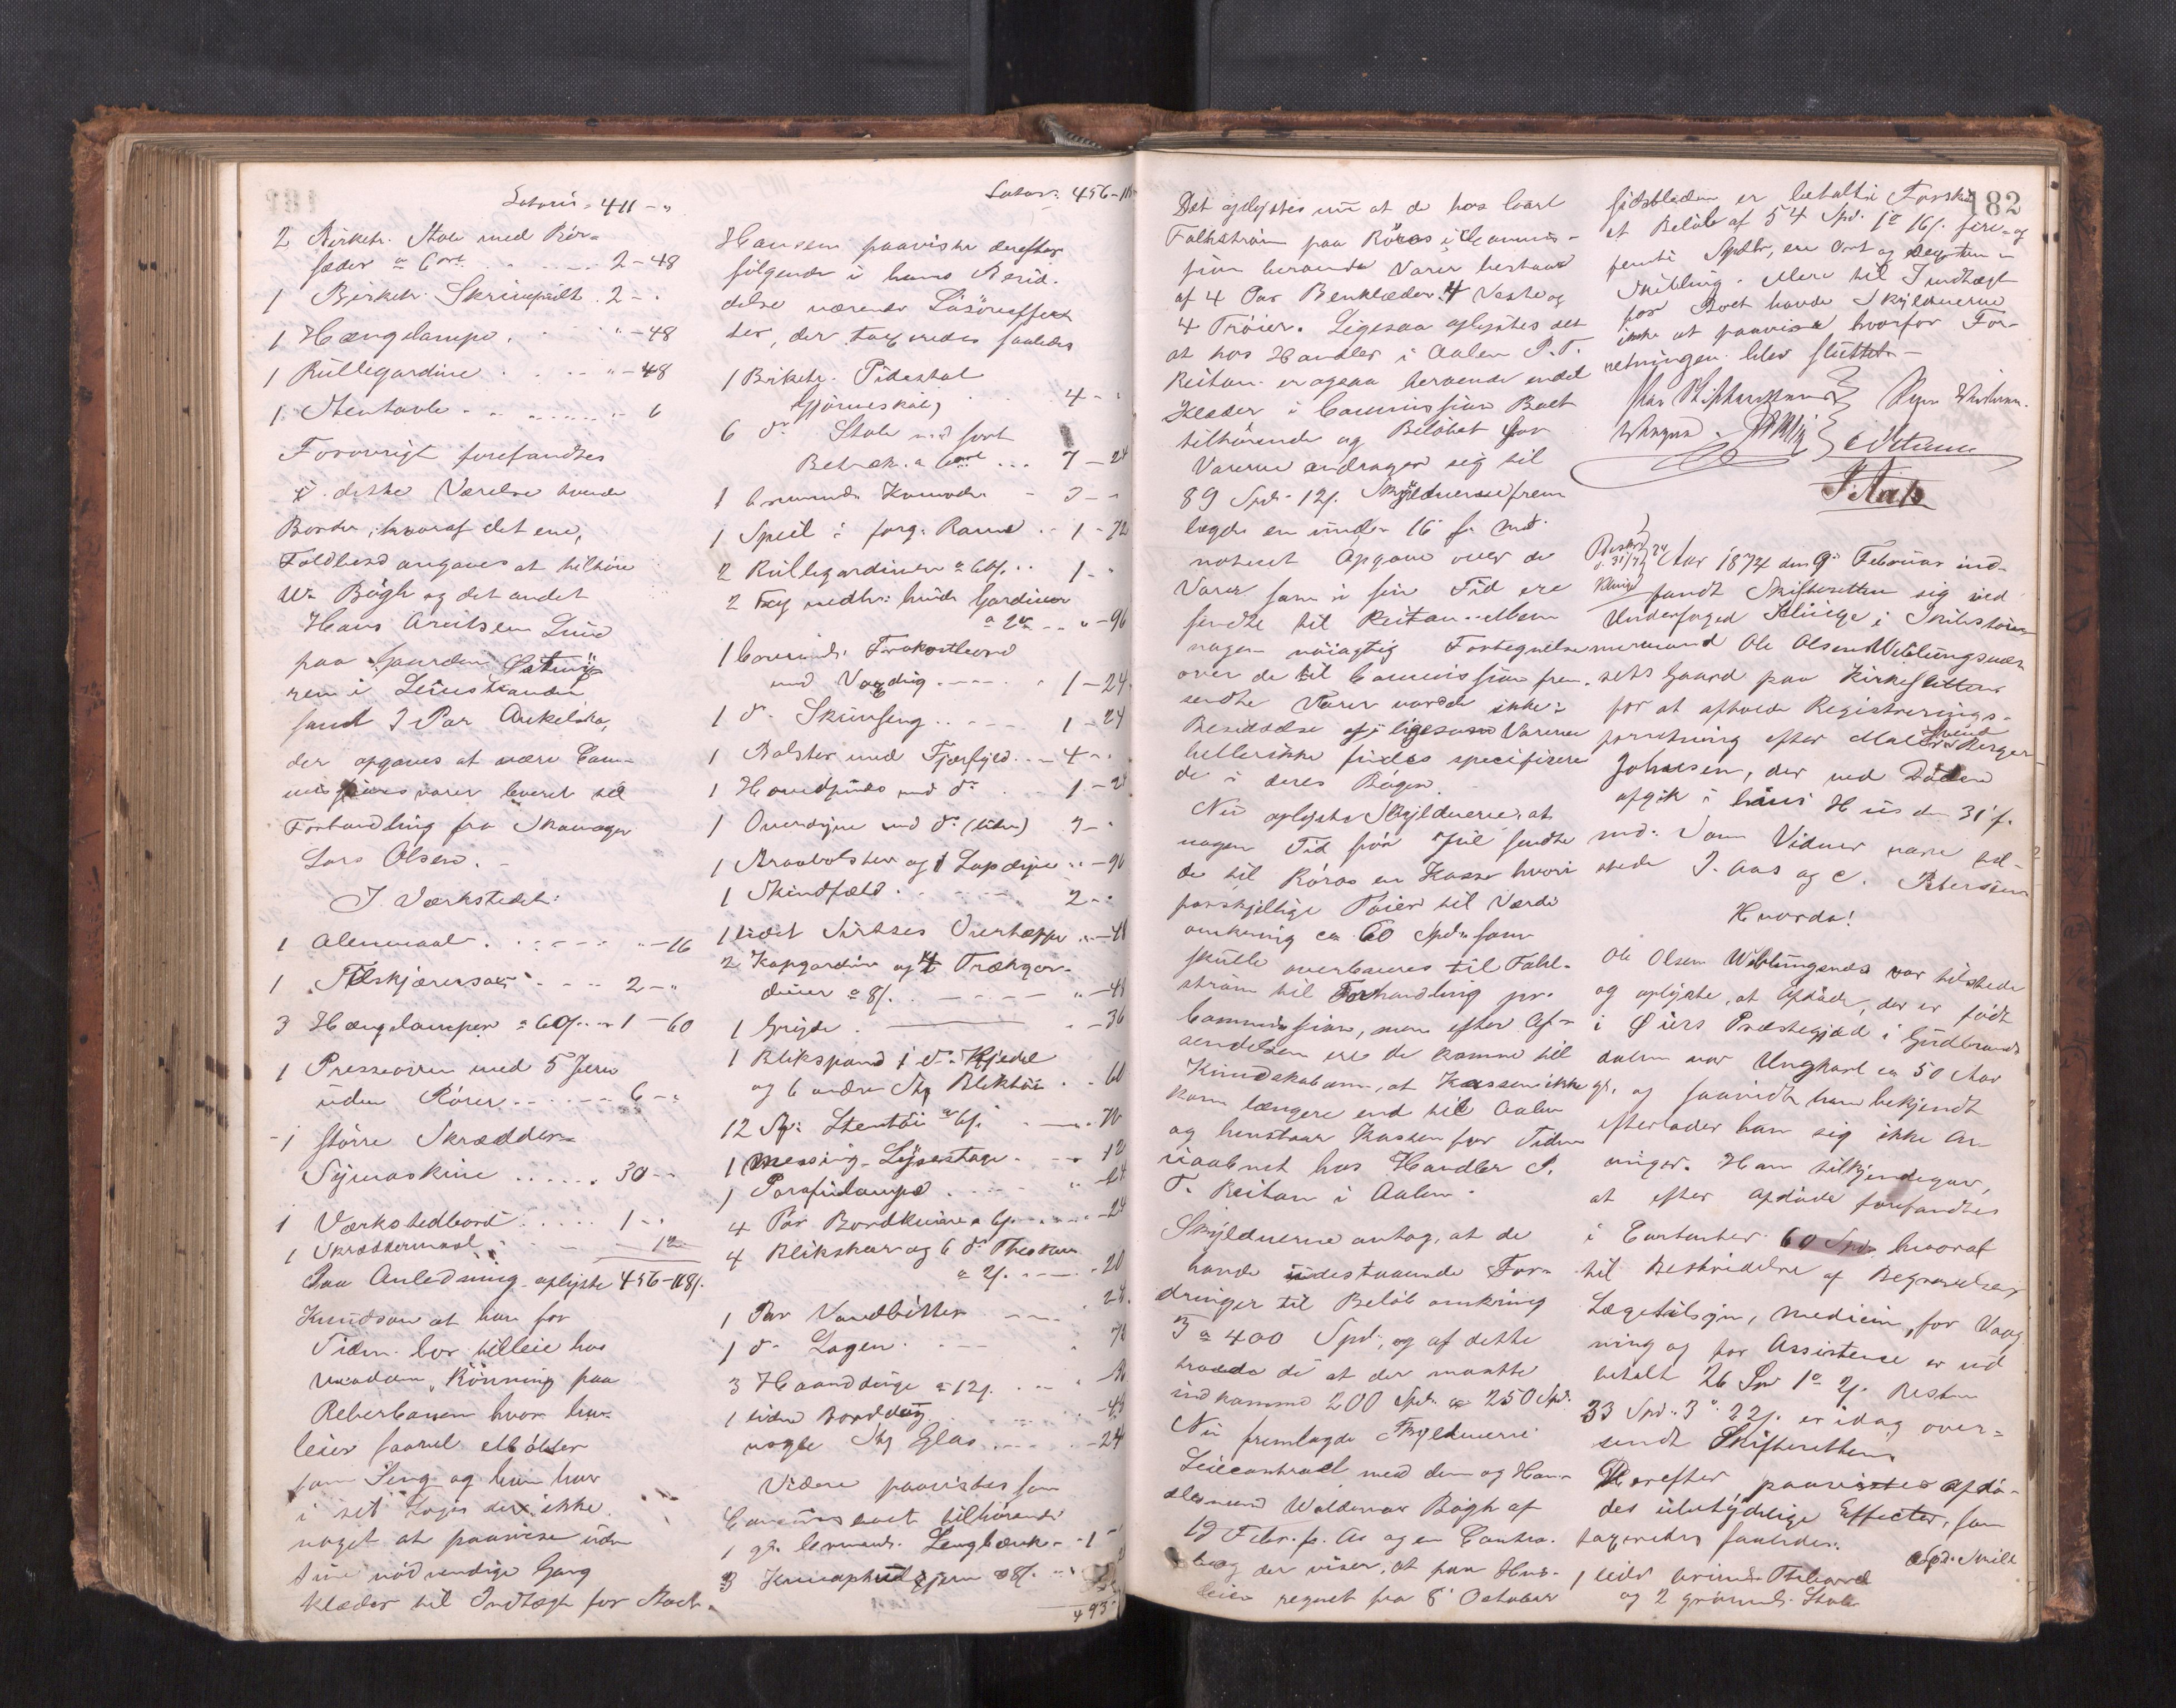 Latus 411 - "
2 Birketr. Stole med Rör-
sæder a 6 ort 2 - 48
1 Birketr. Skrivepult 2 - "
1 Hængelampe " - 48
1 Rullegardine " - 48
1 Stentavle " - 6
Forövrigt forefandtes
i dette Værelse tvende
Borde, hvoraf det ene,
Foldbord angaves at tilhöre
W. Bögh og det andet
Hans Arentsen Lund
paa Gaarden
ren i Leinstranden
samt 2 Par
der opgaves at være Com-
missionsvarer leveret til
Forhandling fra Skomager
Lars Olsen. -
I Værkstedet:
1 Alenmaal " - 16
1 Tilskjærersax 2 - "
3 Hængelamper a 60 s. 1 - 60
1 Presseovn med 5 Jern
uden Rörer 6 - "
1 större Skrædder-
Symaskine 30 - "
1 Værkstedbord 1 - "
1 Skræddermaal 12
Paa Anledning oplyste 456 - 118 s.
Knudsen at han for
Tiden bor tilleie hos
Madam Rönning paa
Reberbanen hvor han
leier saavel Möbler
som Seng og han har
i sit Logis der ikke
noget at paavise uden
sine nödvendige Gang
klæder til Indtægt for Boet.
Latus: 456 - 118
Hansen paaviste derefter
fölgende i hans Besid-
delse værende Lösöreeffek
ter, der taxeredes saaledes
1 Birketr. Pidestal
Hjörneskab 4 - "
6 do Stole med sort
Betræk a 6 ort 7 - 24
1 brunmalt Komode 3 - "
1 Speil i forg. Ramme 1 - 72
2 Rullegardiner a 60 s. 1 - "
2 Fag nedhr. hvide Gardiner
" - 96
1 brunmalt Frokostbord
med Voxdug 1 - 24
1 do Skuvseng 1 - 24
1 Bolster med Fjærfyld 4 - "
1 Hovedpude med do 1 - 24
1 Overdyne med do (liden) 3 - "
1 Straabolster og 1 Lapdyne " - 96
1 Skindfæld 2 - "
1 lidet Overtæppe " - 48
2 Kapgardiner og 4 Trækgar-
diner a 8 s. " - 48
1 Gryde " - 36
1 Blikspand 1 do Kjedel
og 6 andre Stkr Bliktöi " - 60
12 St. Stentöi a 6 s. " - 72
1 Messing-Lysestage " - 12
1 Parafinlampe " - 24
4 Par Bordknive a 6 s. - 24
4 Blikskeer og 6 do Theskeer
a 2 s. - 20
1 Par Vandbötter 24
1 do Lagen 72
3 Haandduge a 12 s. 36
1 liden Borddug - 48
nogle Stkr Glas - 24
Videre paavistes som
Concursboet tilhörende
1 gl. brunmalt Langbænk - 1 -
3 Knaphulsjern a 8 s.
493
182
Det oplystes nu at de hos Carl
Falkström paa Röros i Commis-
sion beroende Varer bestaar
af 4 Par Benklæder 4 Veste og
4 Tröier. Ligesaa oplystes det
at hos Handler i Aalen P. T.
Reitan er ogsaa beroende endel
Klæder i Commission Boet
tilhörende og Belöbet for
Varerne andrager sig til
89 Spd. 12 s. Skyldnerne frem
lagde en under 16 f. Md.
noteret Opgave over de
Varer som i sin Tid ere
sendte til Reitan. Men
nogen nöiagtig Fortegnelse
over de til Commission frem
sendte Varer varde ikke i
Besiddelse af, ligesom Varerne
hellerikke findes specificere
de i deres Böger.
Nu oplyste Skyldnerne, at
nogen Tid för Jul sendte
de til Röros en Kasse hvori
forskjellige Töier til Værdi
omkring ca 60 Spd. som
skulle overleveres til Falk-
ström til Forhandling pr.
Commission, men efter Af-
sendelsen ere de komne til
Kundskab om, at Kassen ikke
kom længere end til Aalen
og henstaar Kassen for Tiden
uaabnet hos Handler P.
T. Reitan i Aalen.
Skyldnerne antog, at de
havde udestaaende For-
dringer til Belöb omkring
3 a 400 Spd., og af dette
troede de at der maatte
indkomme 200 Spd. a 250 Spd.
Nu fremlagde Skyldnerne
Leiecontract med dem og Han-
delsmand Waldemar Bögh af
19 Febr. f. A. og en Contra-
bog der viser, at paa Hus-
leien regnet fra 8 October
sidstleden er betalt i Forskud
et Belöb af 54 Spd. 1 o 16 s. fire og
femti Spdlr, en Ort og sexten
Skilling. Mere til Indtægt
for Boet havde Skyldnerne
ikke at paavise hvorfor For-
retningen blev sluttet. -
J. Aas
Aar 1874 den 9 Februar ind-
fandt Skifteretten sig ved
Underfoged Klüwge i Snikkster
mermand Ole Olsen Viklungsnæs
sets Gaard paa Kirkesletten
for at afholde Registrerings-
forretning efter Maler Berger
Johnsen, der ved Döden
afgik i hans Hus den 31 f.
Md. Som Vidner vare til-
stede J. Aas og C. Petersen
Hvorda!
Ole Olsen Viklungsnæs var tilstede
og oplyste, at Afdöde, der er födt
i Öiers Præstegjæld i Gudbrands
dalen var Ungkarl ca 50 Aar
gl. og saavidt ham bekjendt
efterlader han sig ikke Ar-
vinger. Han tilkjendegav,
at efter Afdöde forefandtes
i Contanter 60 Spd. hvoraf
til Bestridelse af Begravelsen
Lægetilsyn, Medicin, for Vaag
ning og for Assistence er ud
betalt 26 Spd 1 o 2 s. Resten
33 Spd. 3 o 22 s. er idag over-
sendt Skifteretten
Derefter paavistes Afdö-
des ubetydelige Effecter, som
taxeredes saaledes:
Spd. Skill
1 lidet brunmalt Thebord
og 2 grönmalte Stole